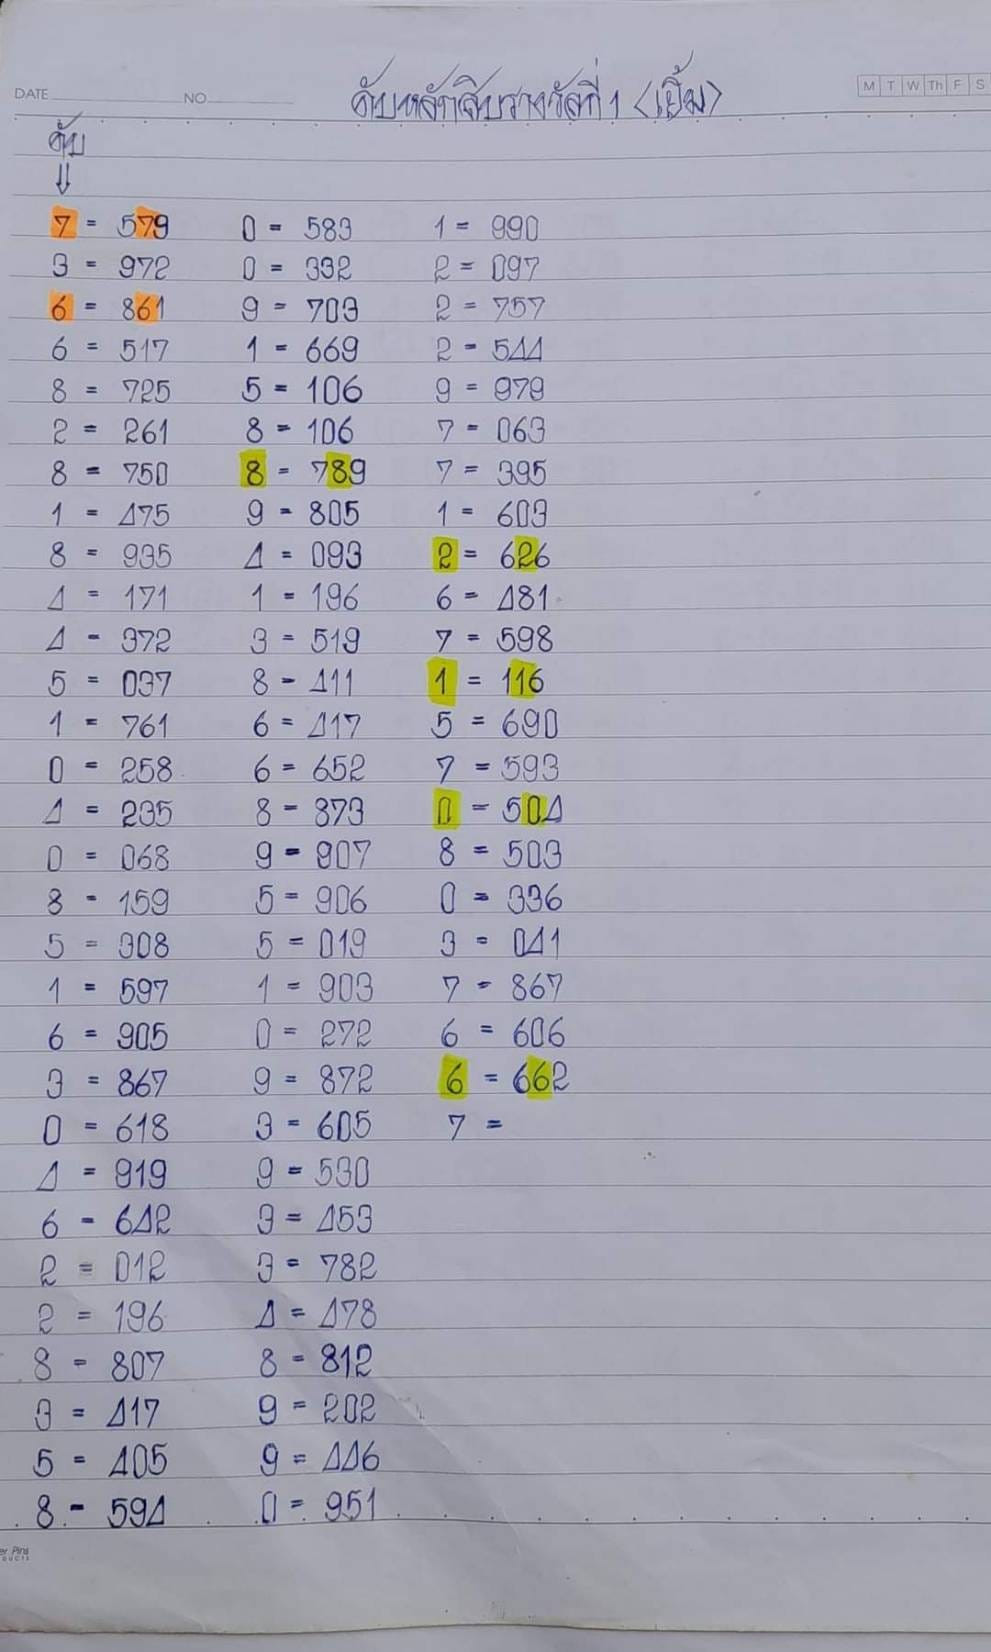 DATE NO. M T W Th F S
ดับหลักสิบรางวัลที่ 1 <เยิ้ม>
ดับ
⇓
7 = 579 0 = 583 1 = 990
3 = 972 0 = 392 2 = 097
6 = 861 9 = 703 2 = 757
6 = 517 1 = 669 2 = 544
8 = 725 5 = 106 9 = 979
2 = 261 8 = 106 7 = 063
8 = 750 8 = 789 7 = 395
1 = 475 9 = 805 1 = 603
8 = 935 4 = 093 2 = 626
4 = 171 1 = 196 6 = 481
4 = 372 3 = 519 7 = 598
5 = 037 8 = 411 1 = 116
1 = 761 6 = 417 5 = 690
0 = 258 6 = 652 7 = 593
4 = 235 8 = 873 0 = 504
0 = 068 9 = 907 8 = 503
8 = 159 5 = 906 0 = 336
5 = 308 5 = 019 3 = 041
1 = 597 1 = 903 7 = 867
6 = 905 0 = 272 6 = 606
3 = 867 9 = 872 6 = 662
0 = 618 3 = 605 7 =
4 = 919 9 = 530
6 = 642 3 = 453
2 = 012 3 = 782
2 = 196 4 = 478
8 = 807 8 = 812
3 = 417 9 = 202
5 = 405 9 = 446
8 = 594 0 = 951